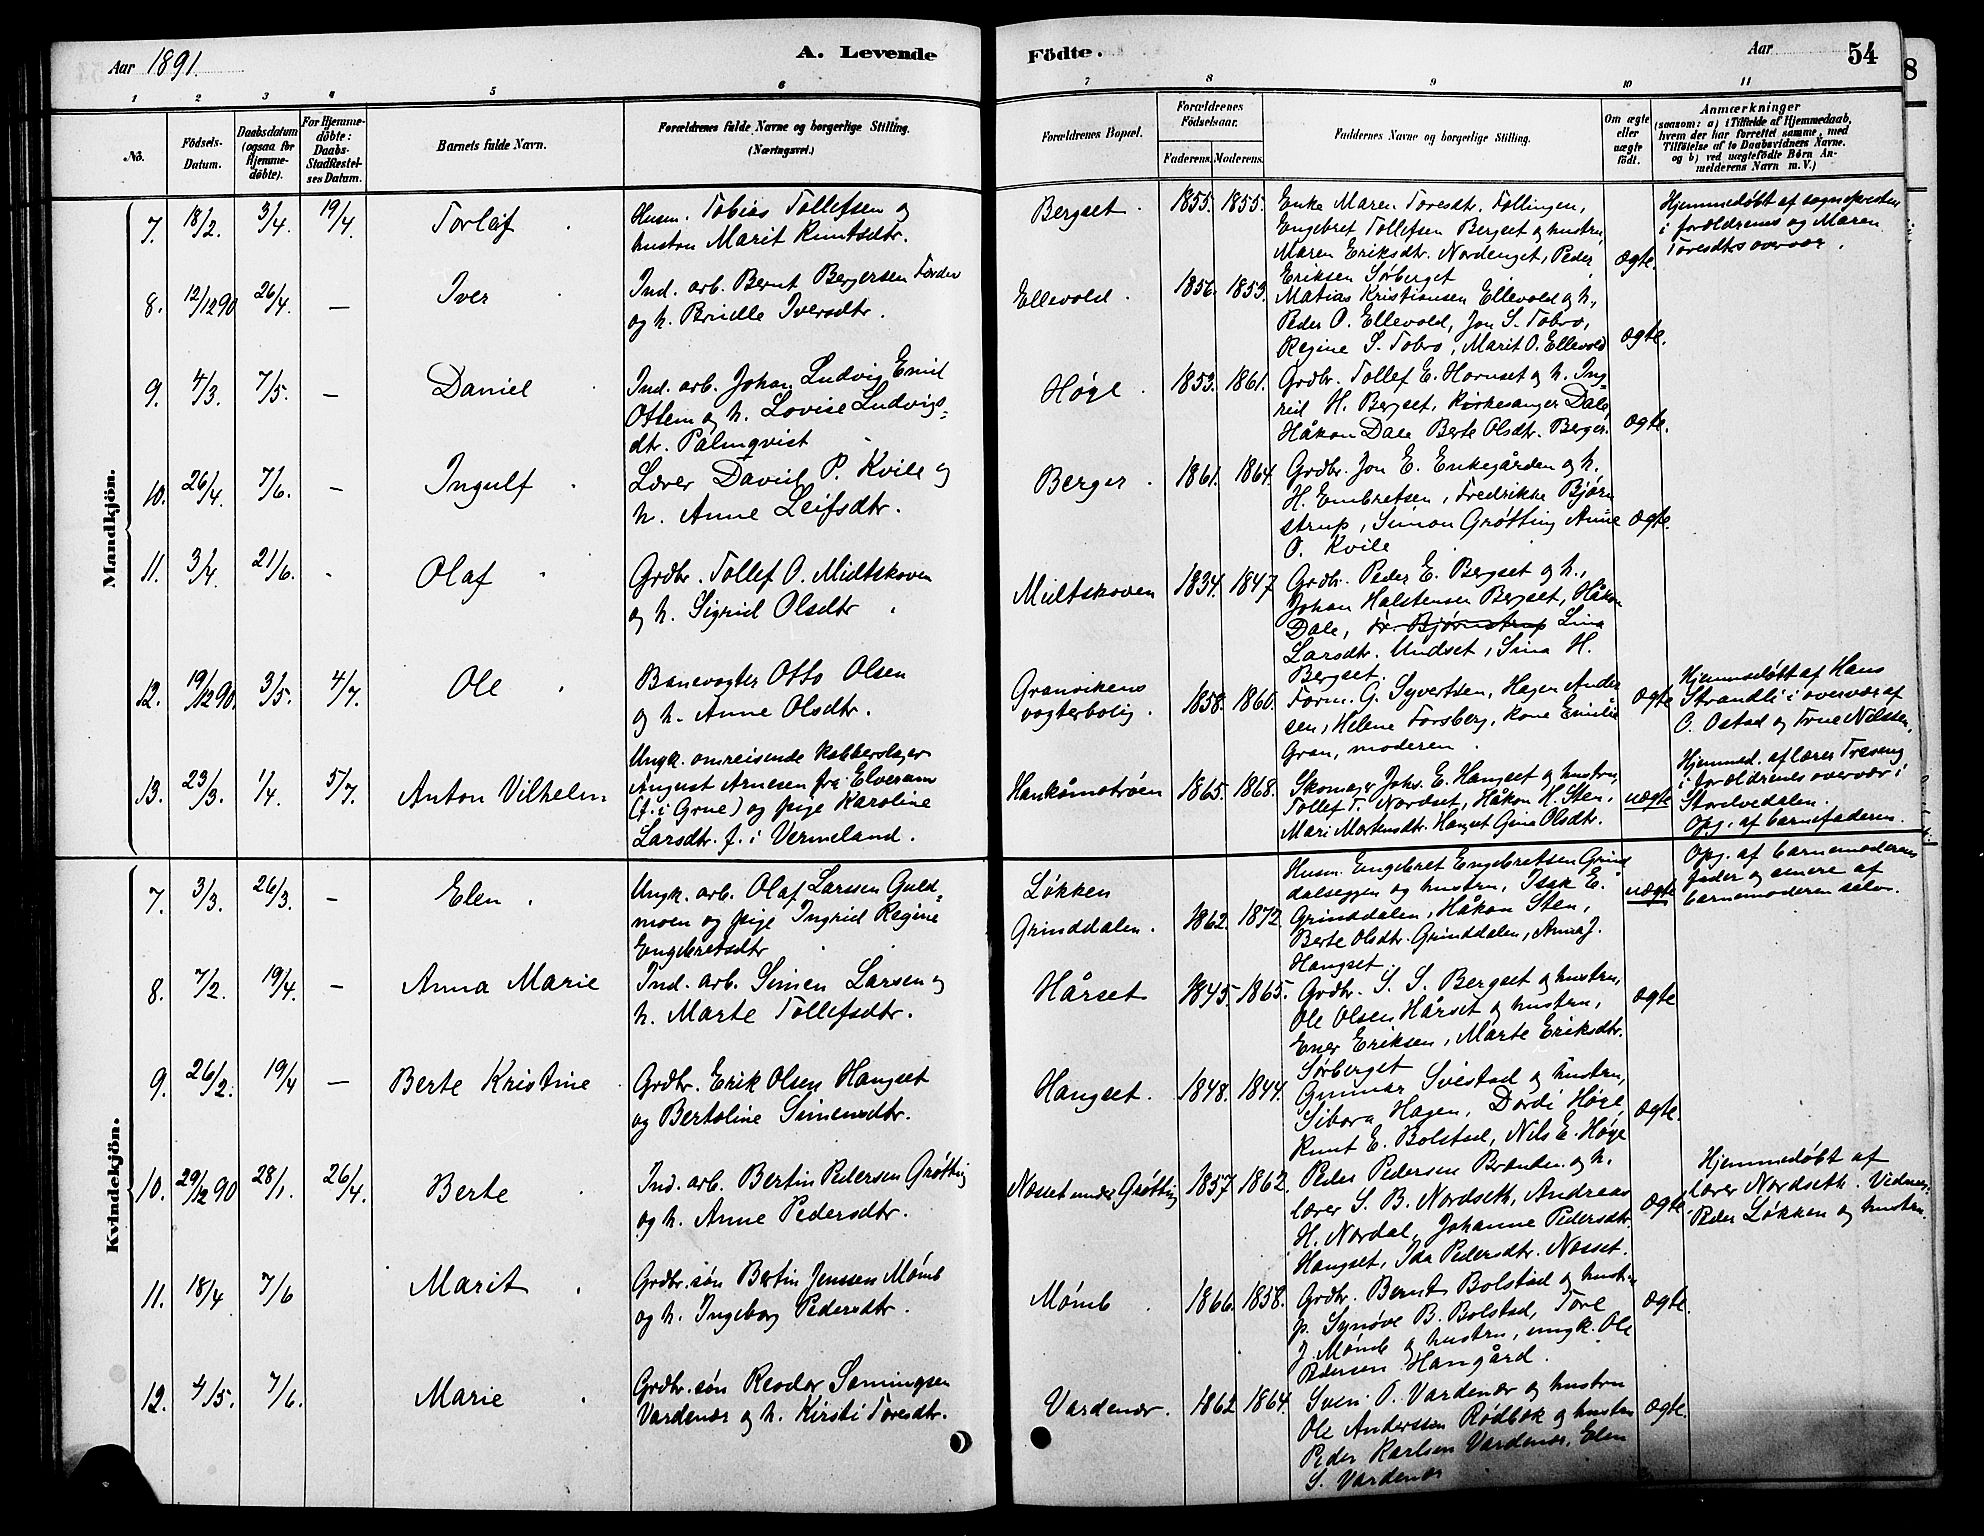 Aar 1891.
A. Levende
Födte.
Aar
54
8
1 2 3 4 5 6 7 8 9 10 11
No.
Födsels-
Datum.
Daabsdatum
(ogsaa for
Hjemme-
döbte).
For Hjemme-
döbte:
Daabs-
Stadfæstel-
ses Datum.
Barnets fulde Navn.
Forældrenes fulde Navne og borgerlige Stilling.
(Næringsvei.)
Forældrenes Bopæl.
Forældrenes
Födselsaar.
Faderens. Moderens.
Faddernes Navne og borgerlige Stilling.
Om ægte
eller
uægte
födt.
Anmærkninger
(saasom: a) i Tilfælde af Hjemmedaab,
hvem der har forrettet samme, med
Tilföielse af to Daabsvidners Navne.
og b) ved uægtefödte Börn An-
melderens Navn m.V.)
Mandkjön.
7. 18/2. 3/4. 19/4. Torlaf
Husm. Tobias Tollefsen og
hustru Marit Knutsdtr.
Bergset. 1855. 1855.
Enke Maren Toresdt. Tollingen,
Engebret Tollefsen Bergset og hustru,
Maren Eriksdtr. Nordenget, Peder
Eriksen Sørberget
ægte.
Hjemmedøbt af sognepresten
i forældrenes og Maren
Toresdtrs overvær.
8. 12/12 90 26/4. — Iver
Ind. arb. Bernt Bergersen
og h. Brielle Iversdtr.
Ellevold. 1856. 1853.
Matias Kristiansen Ellevold og h.,
Peder O. Ellevold, Jon S. Tobro,
Regine S. Tobro, Marit O. Ellevold
ægte.
9. 4/3. 7/5. — Daniel
Ind. arb. Johan Ludvig Emil
Ottem og h. Lovise Ludvigs-
dtr. Palmqvist
Høge. 1853. 1861.
Grdbr. Tollef E. Hornset og h. Ing-
reil H. Bergset, Kirkesanger Dale,
Håkon Dale Berte Olsdtr. Berger.
ægte.
10. 26/4. 7/6. — Ingulf
Lærer David P. Kvile og
h. Anne Leifsdtr.
Berger. 1861. 1864.
Grdbr. Jon E. Enkegården og h.
H. Embretsen, Fredrikke Bjørn
strup, Simon Grøtting Anne
O. Kvile
ægte.
11. 3/4. 21/6. Olaf
Grdbr. Tollef O. Midtskoven
og h. Sigrid Olsdtr
Midtskoven 1834. 1847
Grdbr. Peder E. Bergset og h.,
Johan Halstensen Bergset, Håkon
Dale, fr. Bjørnstrup Lina
Larsdtr. Undset, Sina H.
Bergset.
12. 19/12 90. 3/5. 4/7. Ole
Banevogter Otto Olsen
og h. Anne Olsdtr.
Granvikens
vogterbolig. 1858. 1860.
Form. G. Syvertsen, Hagen Ander
sen, Helene Forsberg, kone Emilie
Gran, moderen.
ægte
Hjemmedøbt af Hans
Strandli i overvær af
O. Ostad og Trne Nilsen.
13. 23/3. 1/4. 5/7. Anton Vilhelm
Ungk. omreisende kobberslager
August Arnesen fra Elverum
(f. i Grue) og pige Karoline
Larsdtr. f. i Vermeland.
Hankåmotrøen 1865. 1868.
Skomager Johs. E. Hangset og hustru,
Tollef T. Nordset, Håkon H. Sten,
Mari Mortensdtr. Hangset Gina Olsdtr.
uægte
Hjemmed. af lærer Træseng
i forældrenes overvær i
Storelvedalen.
Opg. af barnefaderen.
Kvindekjön.
7. 3/3. 26/3. — Elen
Ungk. arb. Olaf Larsen Guld-
moen og pige Ingrid Regine
Engebretsdtr
Løkken
Grinddalen. 1862. 1872.
Husm. Engebret Engebretsen Grind
dalseggen og hustru, Isak E.
Grinddalen, Håkon Sten,
Berte Olsdtr. Grinddalen, Anna J.
Hangset.
uægte
Opg. af barnemoderens
fader og senere af
barnemoderen selv.
8. 7/2. 19/4. — Anna Marie
Ind. arb. Simen Larsen og
h. Marte Tollefsdtr.
Hårset 1845. 1865.
Grdbr. S. S. Bergset og hustru,
Ole Olsen Hårset og hustru,
Ener Eriksen, Marte Eriksdtr.
Sørberget
ægte
9. 26/2. 19/4 — Berte Kristine
Grdbr. Erik Olsen Hangset
og Bertoline Simensdtr.
Hangset. 1848. 1844.
Gunnar Svestad og hustru,
Sibora Hagen, Dordi Høge,
Knut E. Bolstad, Nils E. Høge
ægte.
10. 29/12 90 28/1. 26/4. Berte
Ind. arb. Bertin Pedersen Grøtting
og h. Anne Pedersdtr.
Næsset under Grøtting 1857. 1862.
Peder Pedersen Brænden og h.
lærer S. B. Nordseth, Andreas
H. Nordal, Johanne Pedersdtr.
Hangset, Ida Pedersdtr. Næsset.
ægte
Hjemmedøbt af
lærer Nordseth. Vidner:
Peder Løkken og hustru.
11. 18/4 7/6 Marit
Grdbr.søn Bertin Jenssen Mømb
og h. Ingeborg Pedersdtr.
Mømb 1866. 1858.
Grdbr. Bernt Bolstad og hust.
p. Synøve B. Bolstad, Tore
J. Mømb og hustru, ungk. Ole
Pedersen Hangård.
ægte.
12. 4/5. 7/6. Marie
Grdbr.søn Reodor Semingsen
Vardenær og h. Kirsti Toresdtr.
Vardenær. 1862 1864.
Sven O. Vardenær og hustru
Ole Andersson Rødbæk og hustru
Peder Karlsen Vardenær, Elen
S. Vardenær
ægte.